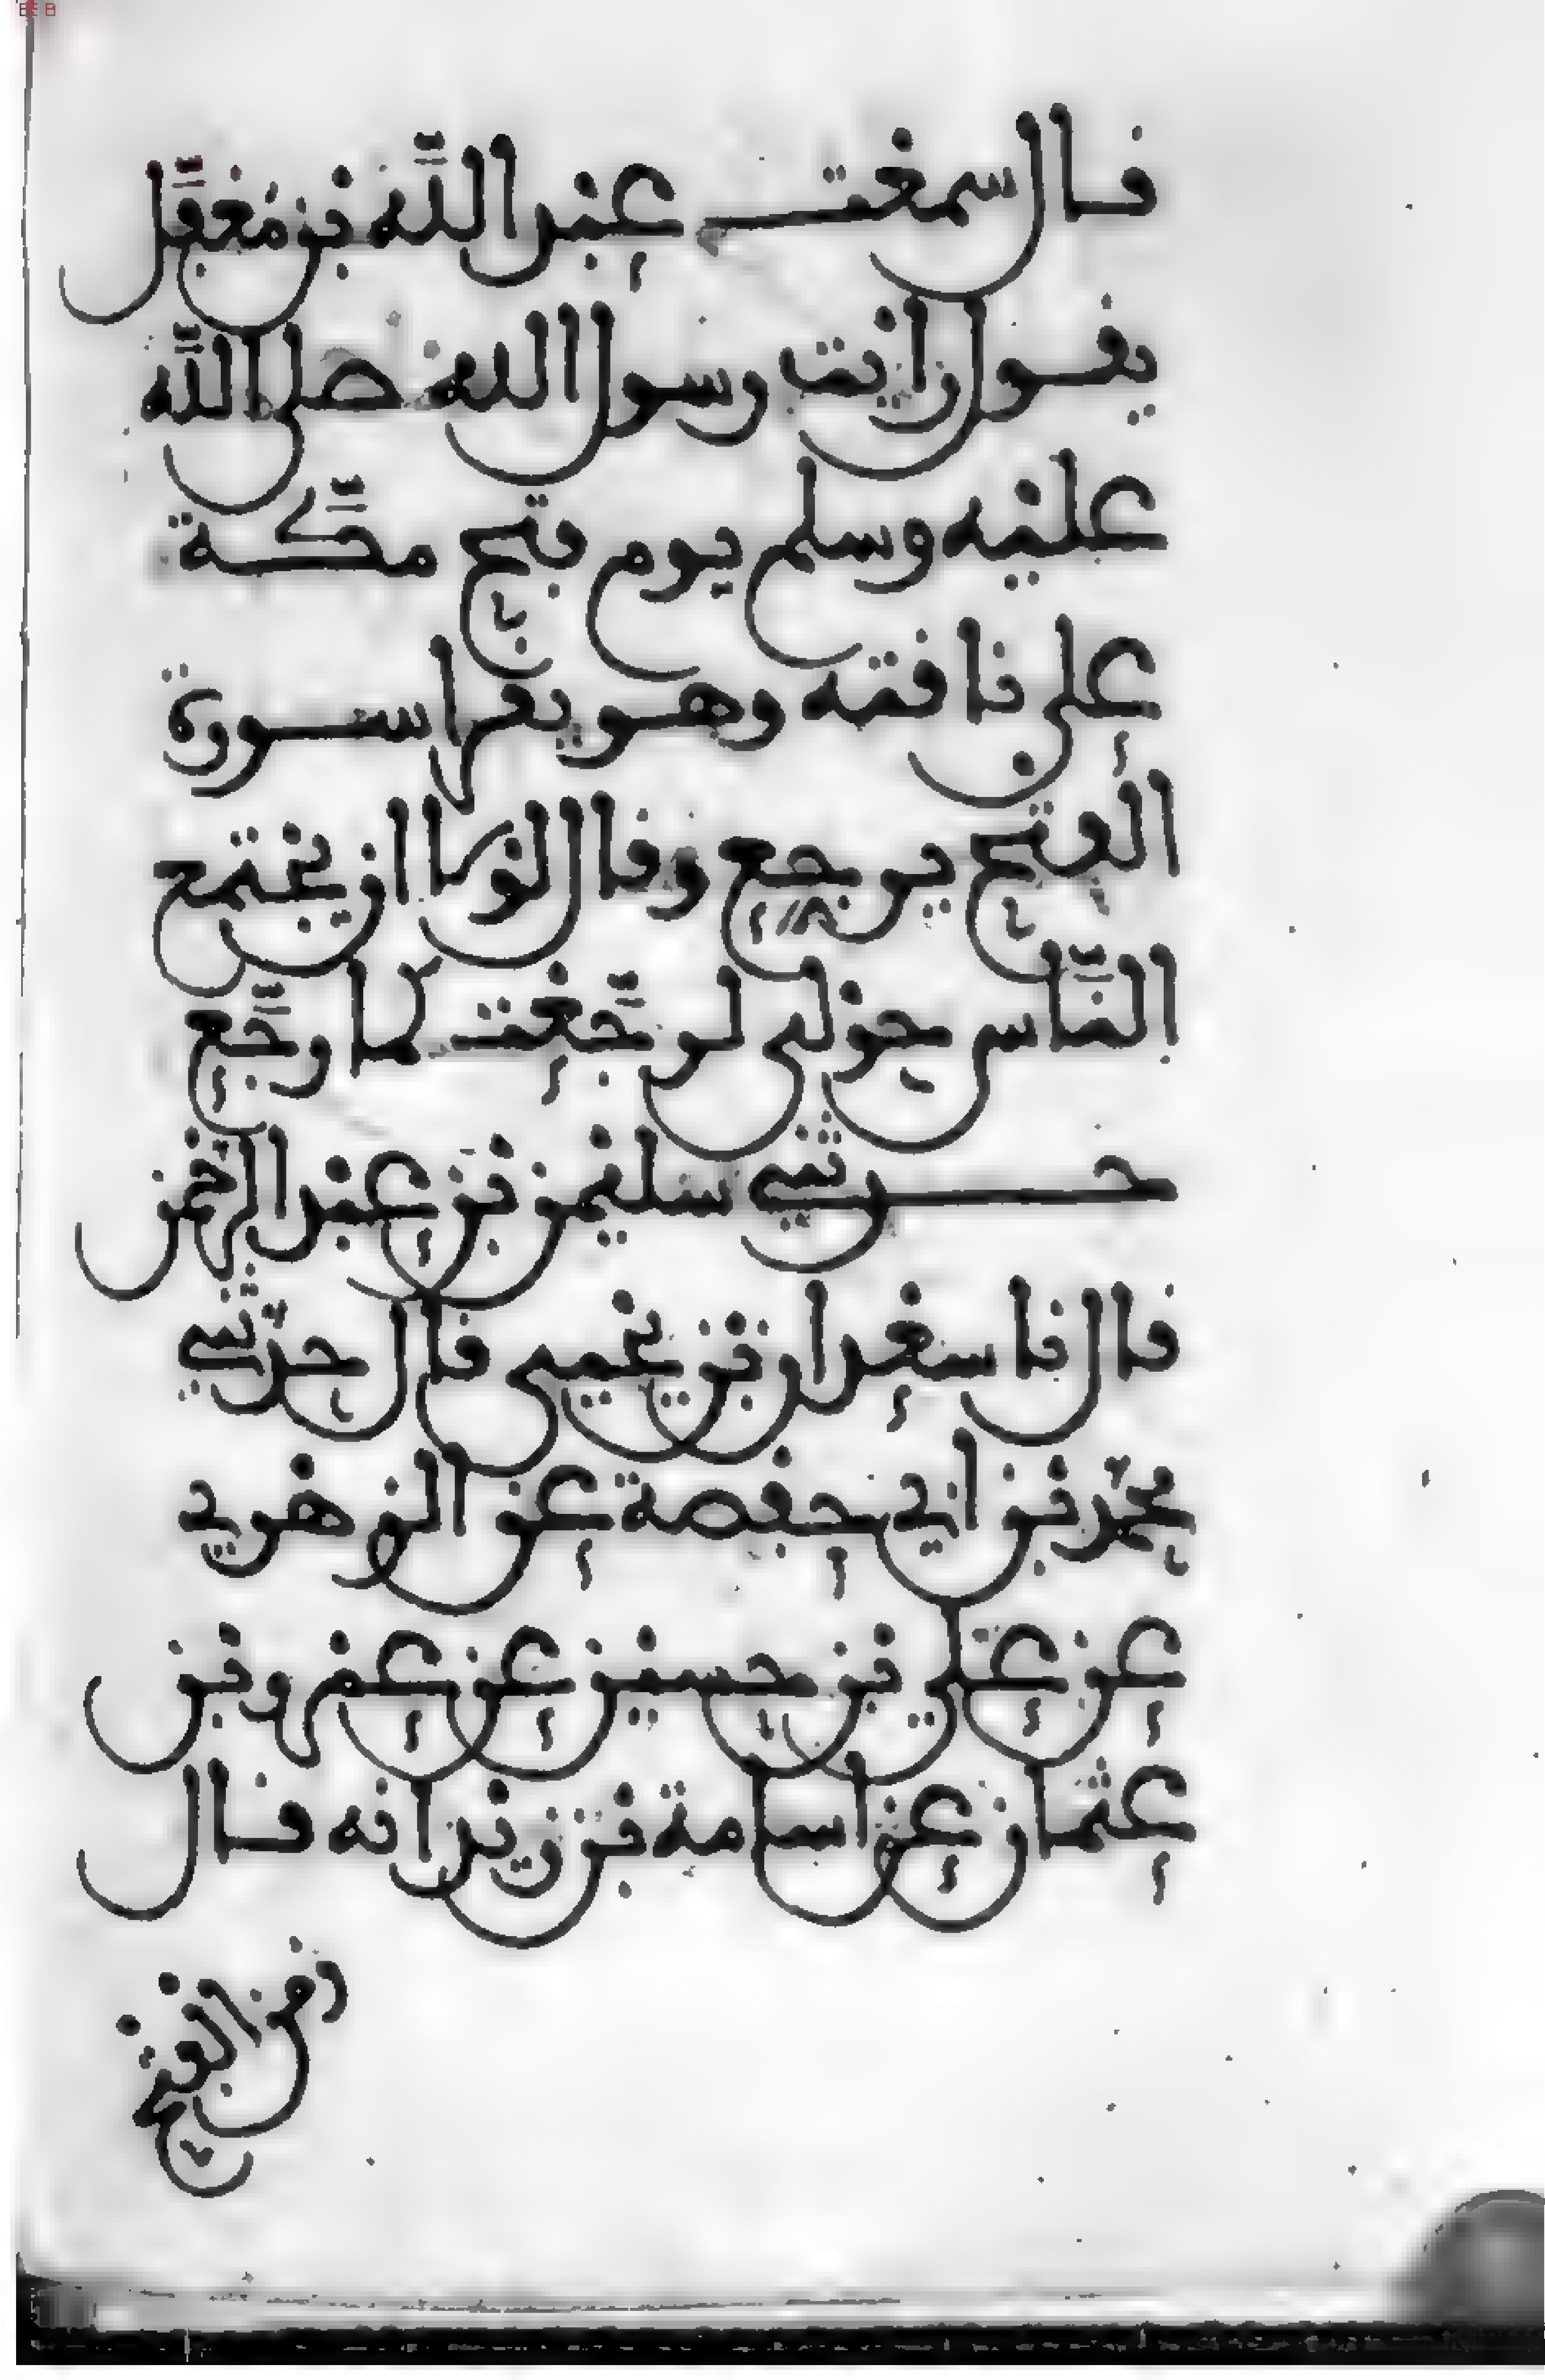 قال سمعت عبد الله بن مغفل
يقول رايت رسول الله صلى الله
عليه وسلم يوم فتح مكة
على ناقته وهو يقرا سورة
الفتح يرجع وقال لولا ان يجتمع
الناس حولى لرجعت كما رجع
حدثني سليمن بن عبد الرحمن
قال نا سعدان بن يحيى قال حدثني
محمد بن ابي حفصة عن الزهري
عن علي بن حسين عن عمرو بن
عثمان عن اسامة بن زيد انه قال
زمن الفتح